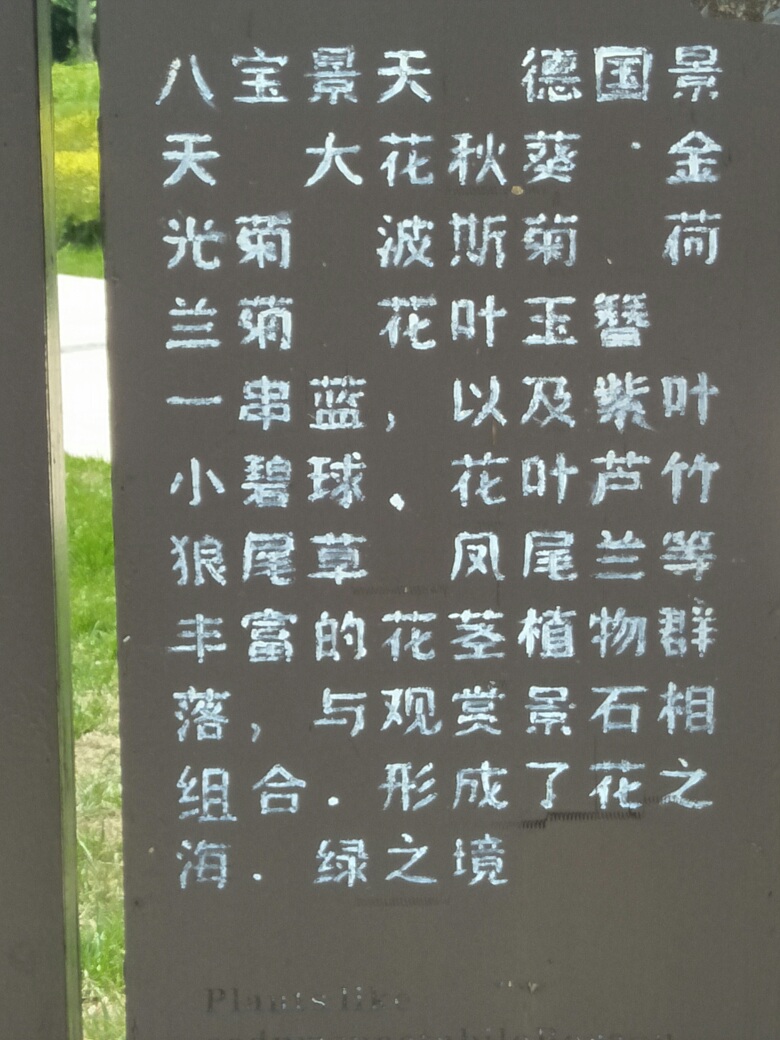 八宝景天 德国景
天 大花秋葵 金
光菊 波斯菊 荷
兰菊 花叶玉簪
一串蓝，以及紫叶
小碧球、花叶芦竹
狼尾草 凤尾兰等
丰富的花茎植物群
落，与观赏景石相
组合．形成了花之
海．绿之境
Plants like